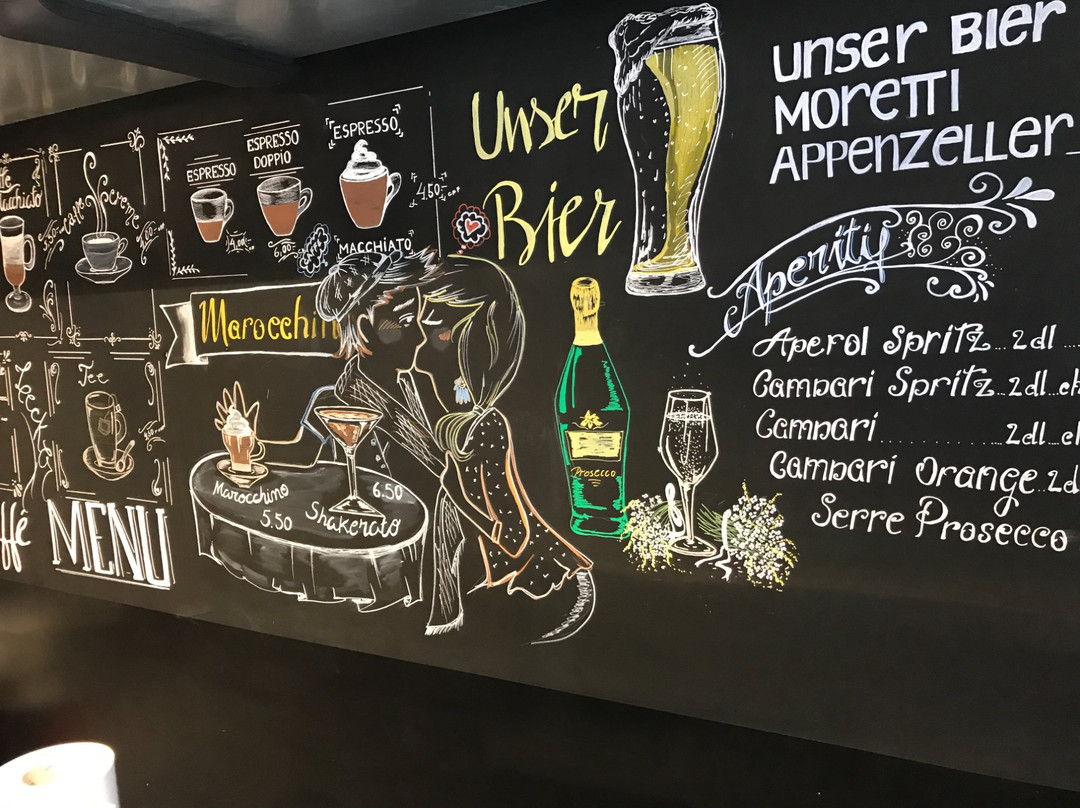 Macchiato
cafe creme
ESPRESSO
4.00
ESPRESSO
DOPPIO
6.00
ESPRESSO
MACCHIATO
4.50
Marocchin
Tee
MENU
Marocchino
5.50
Shakerato
6.50
Unser
Bier
Prosecco
unser Bier
Moretti
Appenzeller
Aperitif
Aperol Spritz...2dl....
Campari Spritz...2dl...ch
Campari...............2dl...
Campari Orange...2d
Serre Prosecco